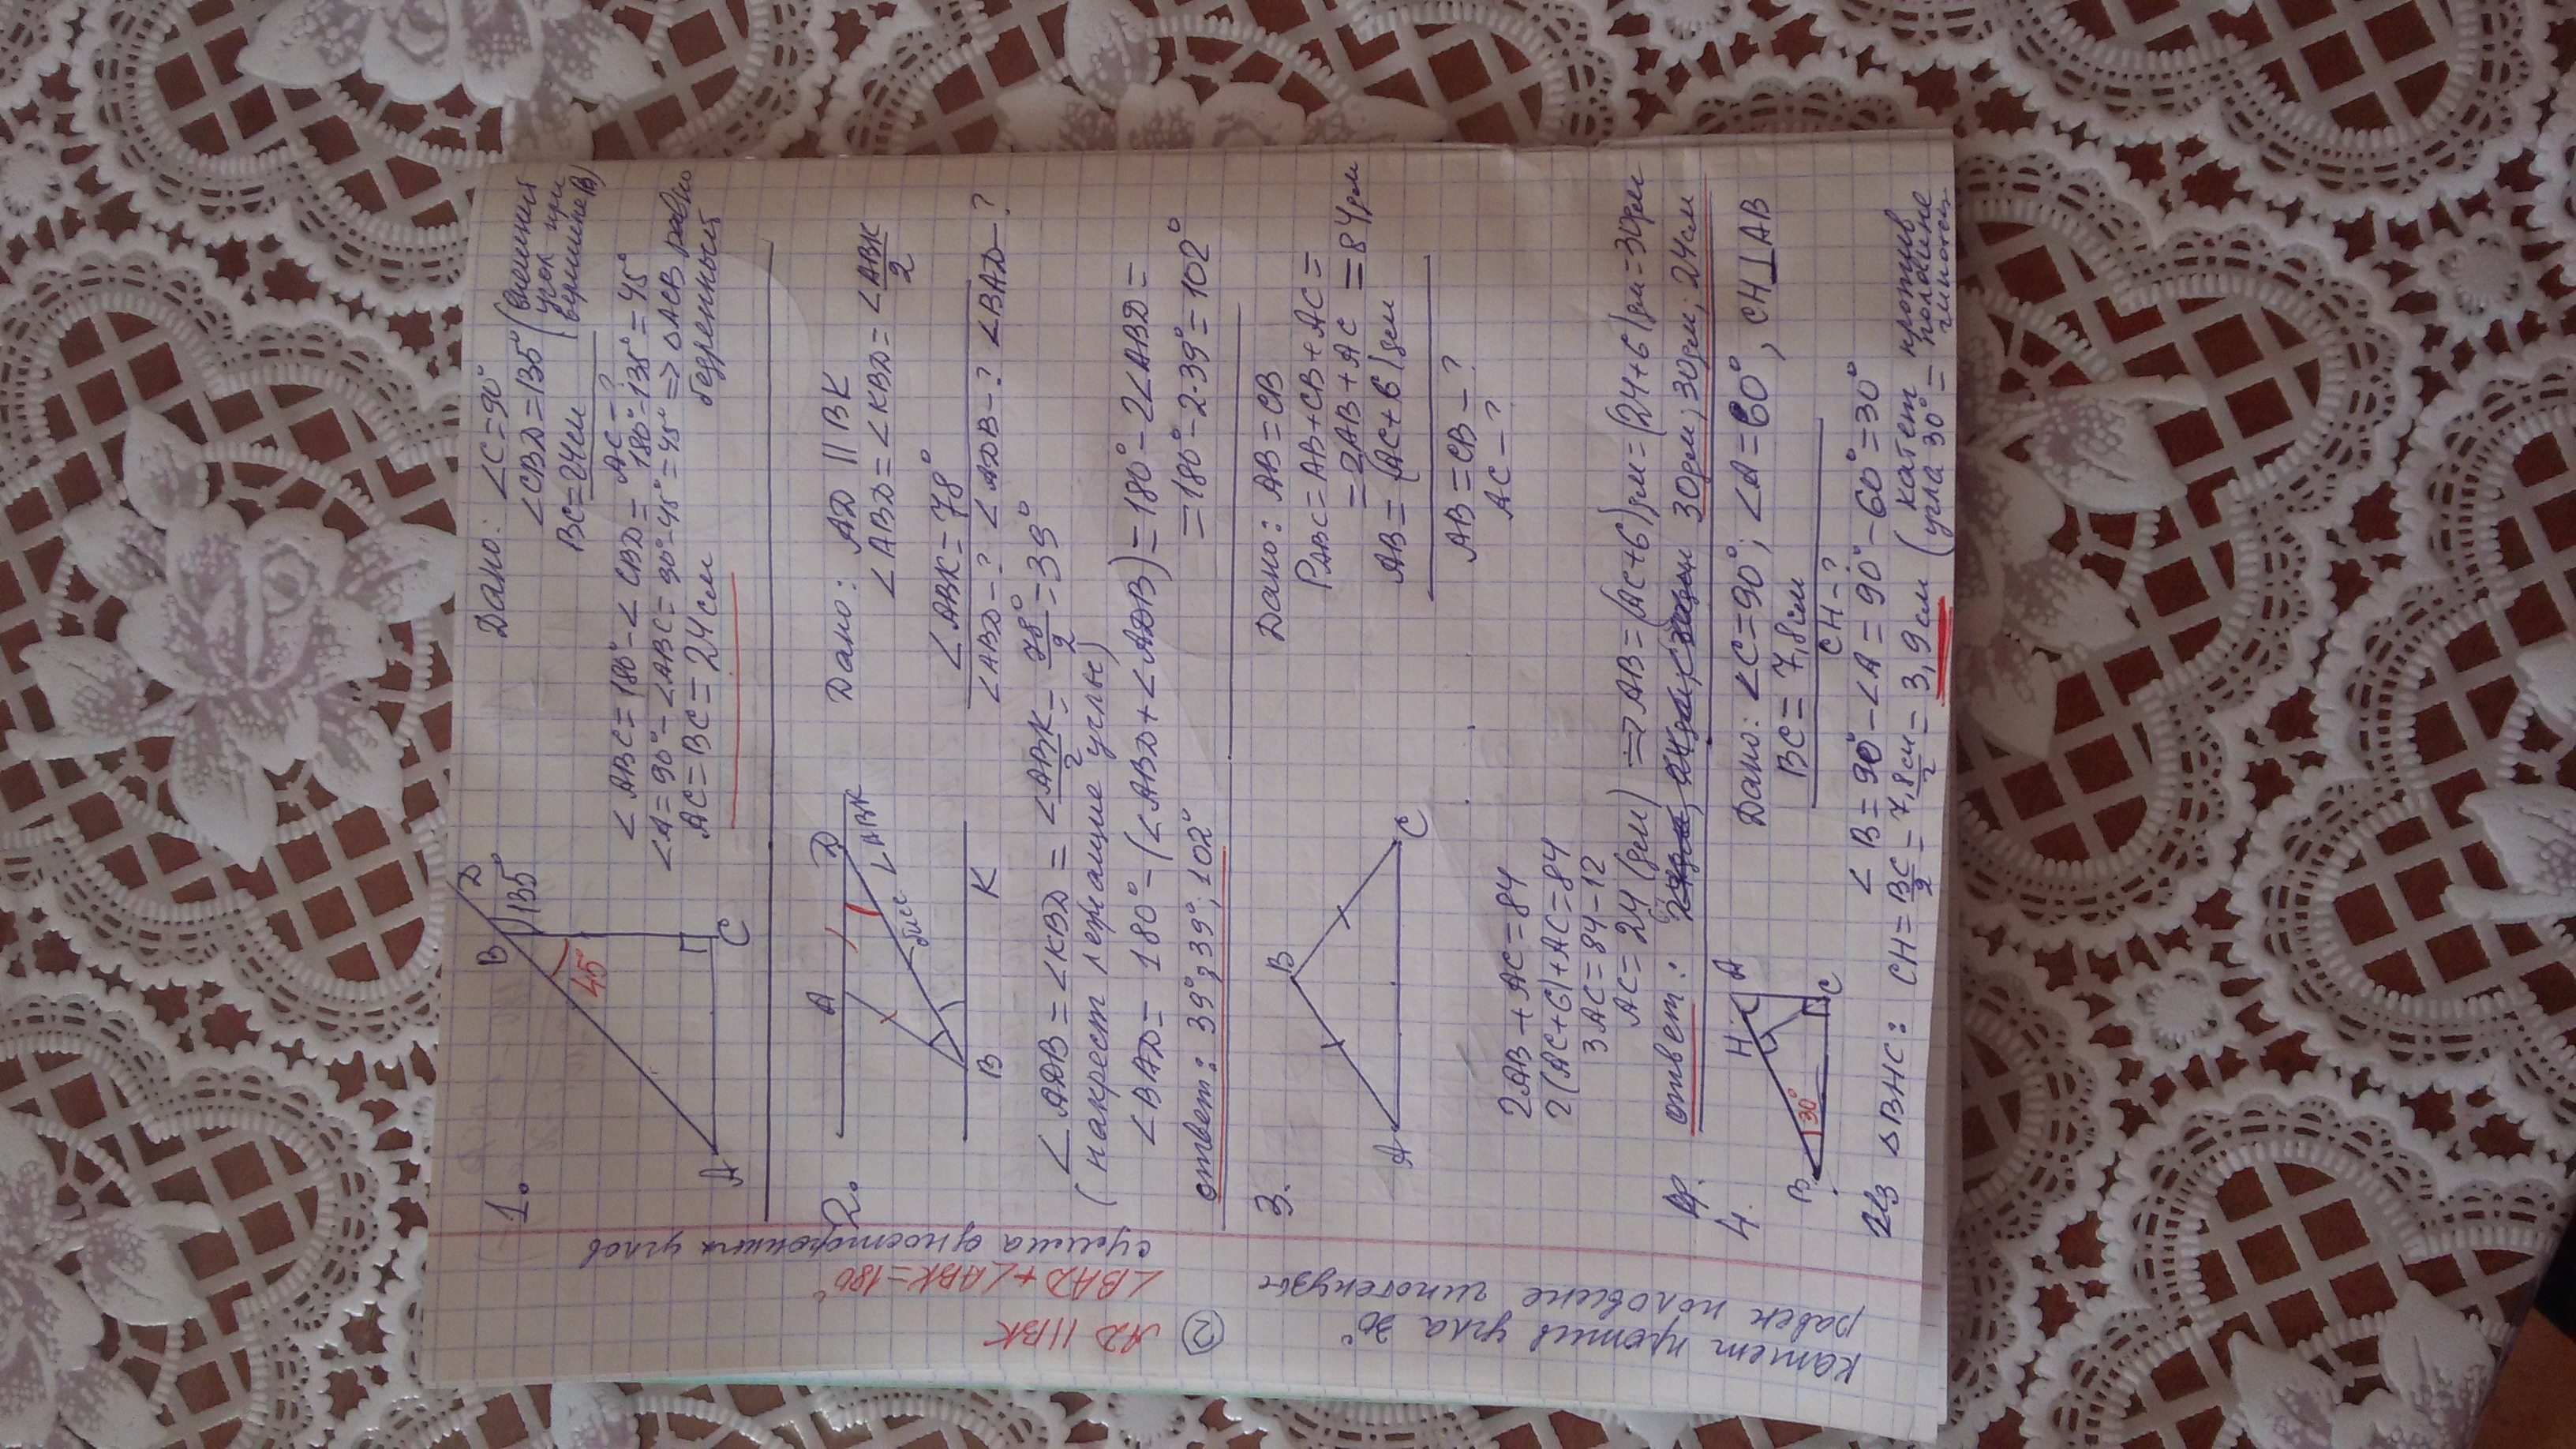 1.
B
D
135°
45°
A
C
Дано: ∠C=90°
∠CBD=135° (внешний
угол при
вершине B)
BC=24см
AC-?
∠ABC=180°-∠CBD= 180°-135°=45°
∠A=90°-∠ABC=90°-45°=45° => ΔACB равно
бедренный
AC=BC=24см
2.
A
D
∠ABK
бисс
B
K
Дано: AD || BK
∠ABD=∠KBD=∠ABK/2
∠ABK=78°
∠ABD-? ∠ADB-? ∠BAD-?
∠ADB=∠KBD=∠ABK/2=78°/2=39°
(накрест лежащие углы)
∠BAD= 180°-(∠ABD+∠ADB)=180°-2∠ABD=
=180°-2·39°=102°
ответ: 39°;39°;102°
3.
B
A
C
Дано: AB=CB
PABC=AB+CB+AC=
=2AB+AC=84дм
AB=(AC+6)дм
AB=CB-?
AC-?
2AB+AC=84
2(AC+6)+AC=84
3AC=84-12
AC=24(дм) => AB=(AC+6)дм=(24+6)дм=30дм
ответ: 30дм; 30дм; 24см
4.
H
A
30°
B
C
Дано: ∠C=90°; ∠A=60°, CH⊥AB
BC=7,8см
CH-?
∠B=90°-∠A=90°-60°=30°
Из ΔBHC: CH=BC/2=7,8см/2=3,9см (катет против
угла 30°= половине
гипотен
②
AD||BK
∠BAD+∠ABK=180°
сумма односторонних углов
катет против угла 30°
равен половине гипотенузы